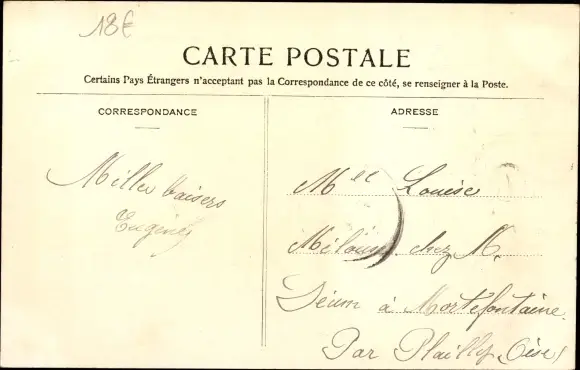 18€
CARTE POSTALE
Certains Pays Étrangers n'acceptant pas la Correspondance de ce côté, se renseigner à la Poste.
CORRESPONDANCE
Milles baisers
ADRESSE
Mlle Louise
chez M.
à Mortefontaine
Par Plailly (Oise)